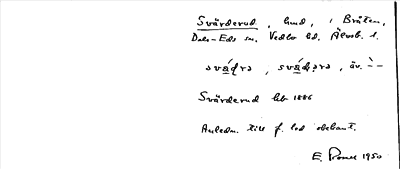 Svärderud, hmd, i Bråten,
Dals-Eds sn. Vedbo hd. Älvsb. l.
svä̀ɖrə, svä̀ɖərə, äv. ` –
Svärderud hfl 1886
Anledn. till f. led obekant.
E. 1950